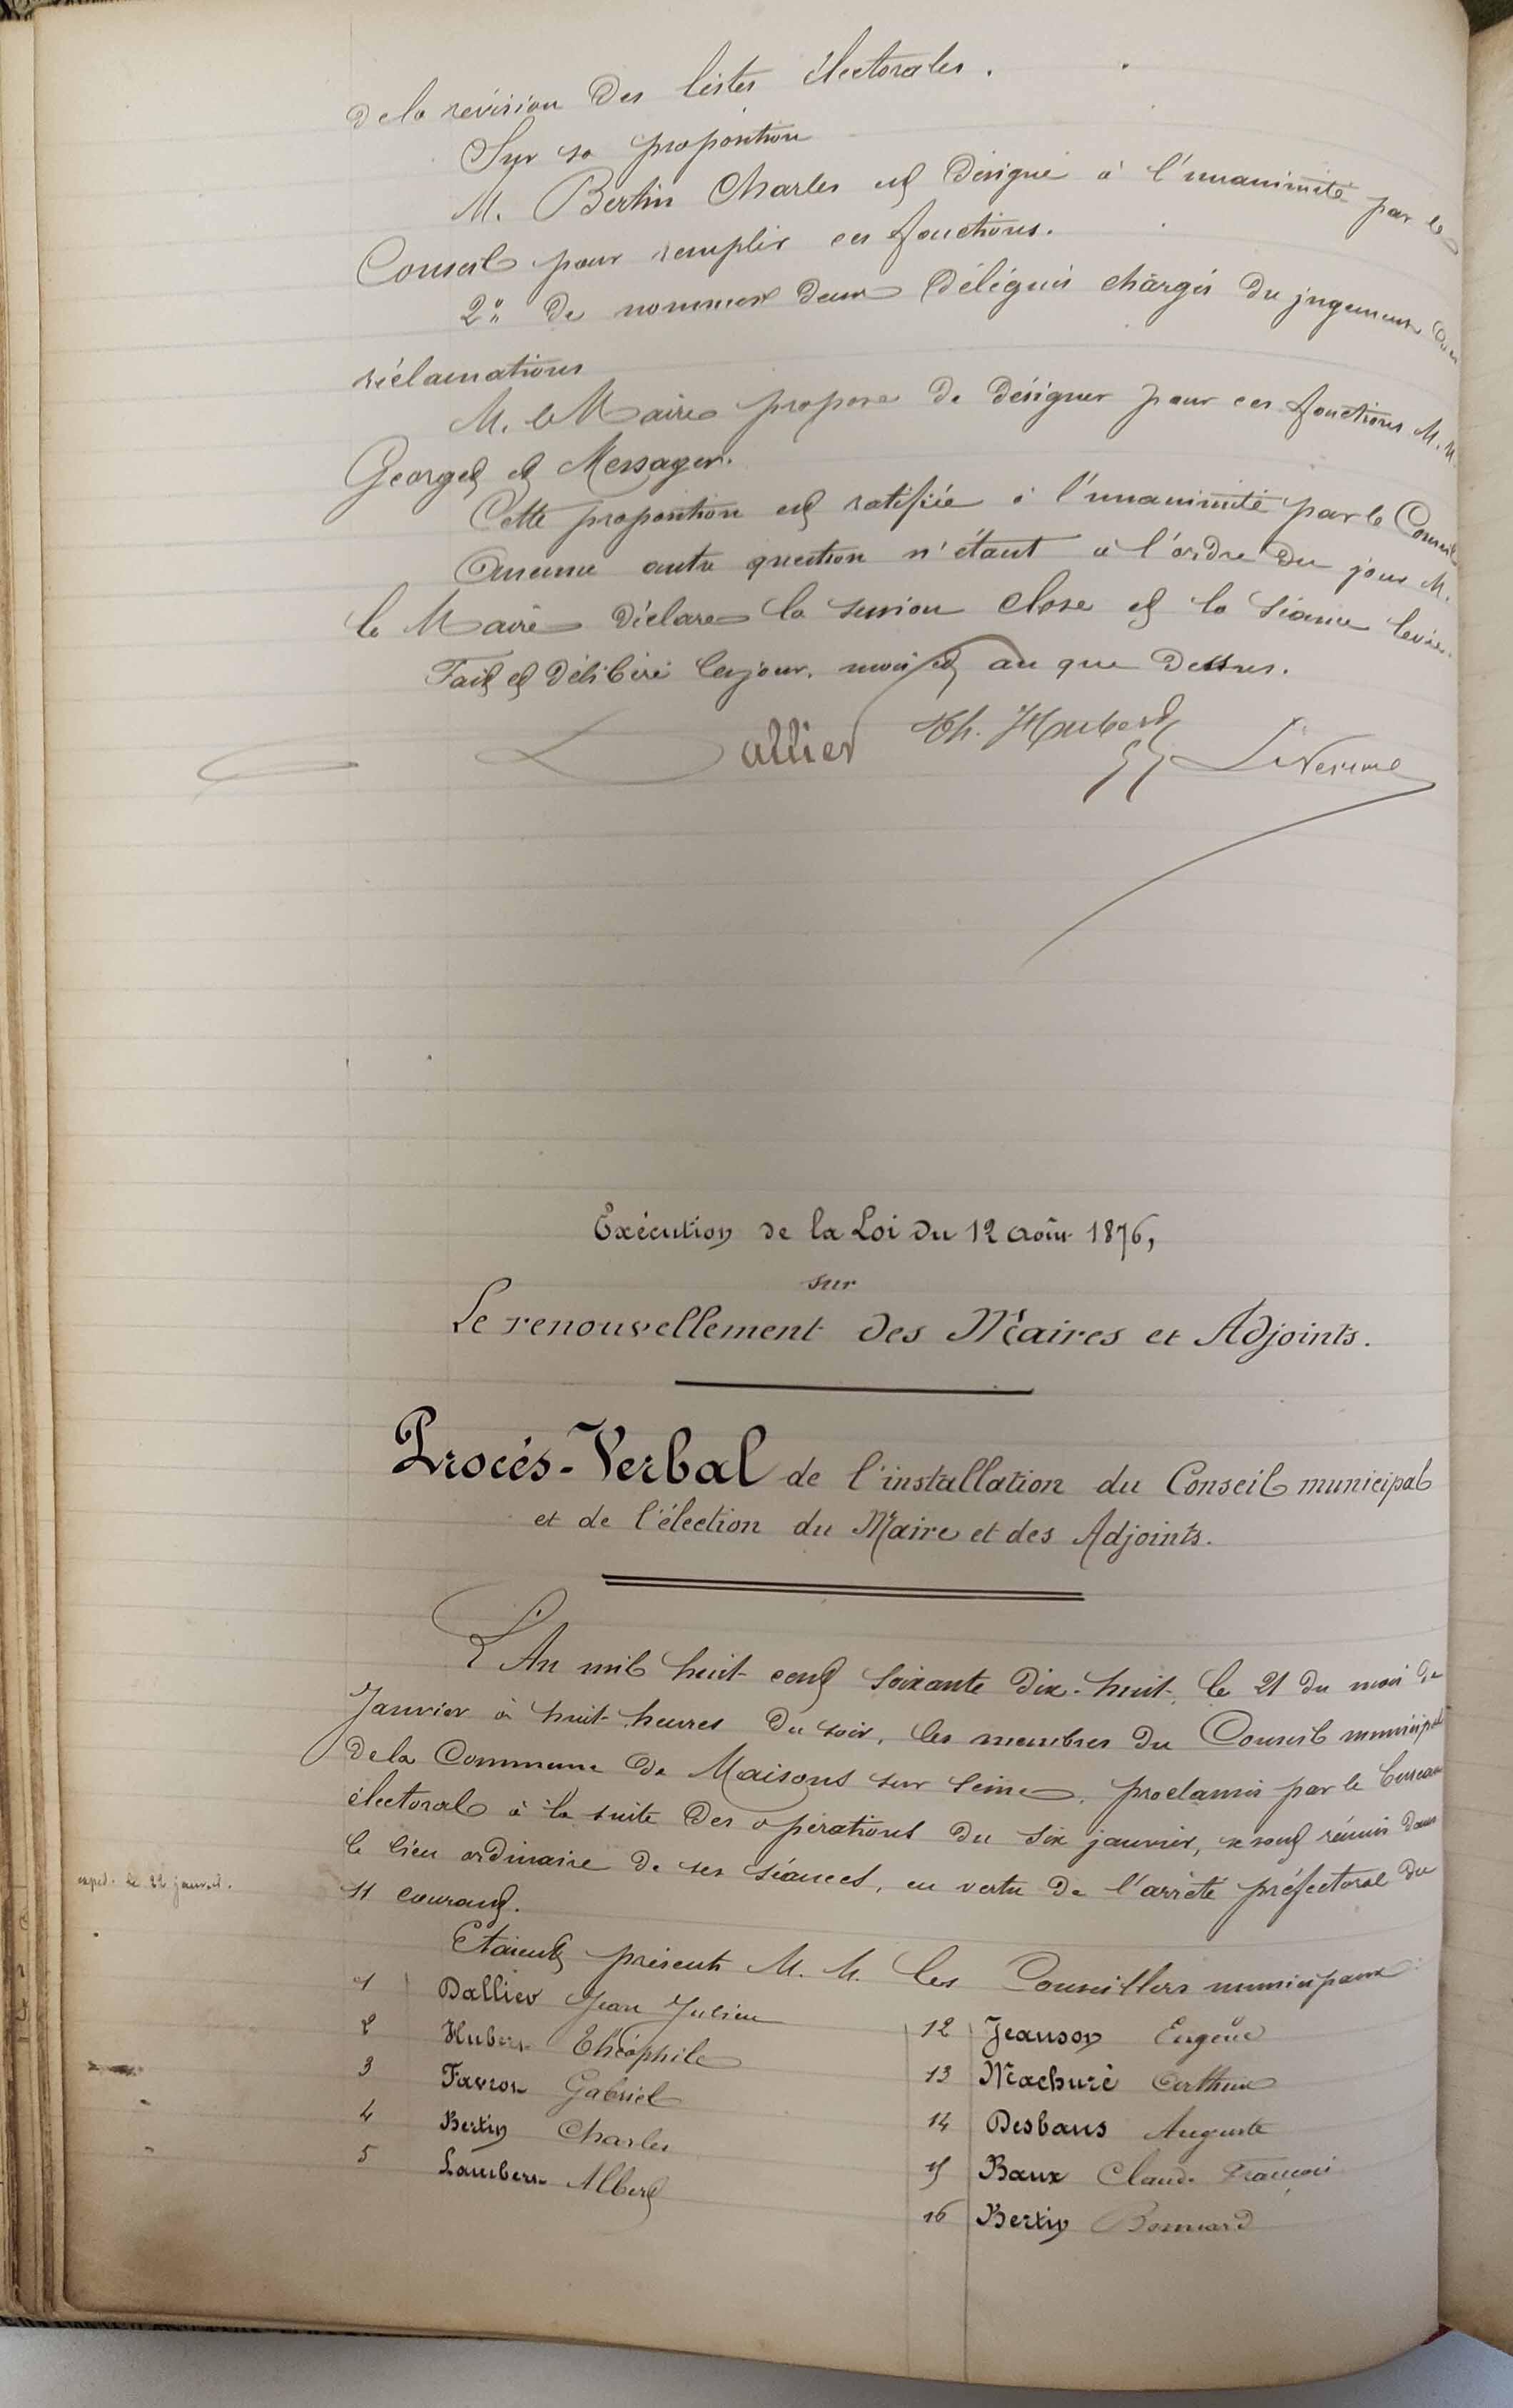 de la révision des listes électorales.
Sur sa proposition
M. Bertin Charles est désigné à l'unanimité par le
Conseil pour remplir ces fonctions.
2° de nommer deux délégués chargés du jugement des
réclamations
M. le Maire propose de désigner pour ces fonctions M. M.
Georget et Messager.
Cette proposition est ratifiée à l'unanimité par le Conseil
Aucune autre question n'étant à l'ordre du jour M.
le Maire déclare la session close et la séance levée.
Fait et délibéré les jour, mois et an que dessus.
Dallier Th. Hubert
Exécution de la Loi du 12 août 1876,
sur
Le renouvellement des Maires et Adjoints.
Procès-Verbal de l'installation du Conseil municipal
et de l'élection du Maire et des Adjoints.
L'An mil huit cent soixante dix-huit, le 21 du mois de
Janvier à huit heures du soir, les membres du Conseil municipal
de la Commune de Maisons sur Seine, proclamés par le bureau
électoral à la suite des opérations du six janvier, se sont réunis dans
le lieu ordinaire de ses séances, en vertu de l'arrêté préfectoral du
exped. le 22 janvier.
11 courant.
Etaient présents M. M. les Conseillers municipaux
1 Dallier Jean Julien
2 Hubert Théophile
3 Favron Gabriel
4 Bertin Charles
5 Lambert Albert
12 Jeanson Eugène
13 Machuré Arthur
14 Desbans Auguste
15 Baux Claude François
16 Bertin Bonnard